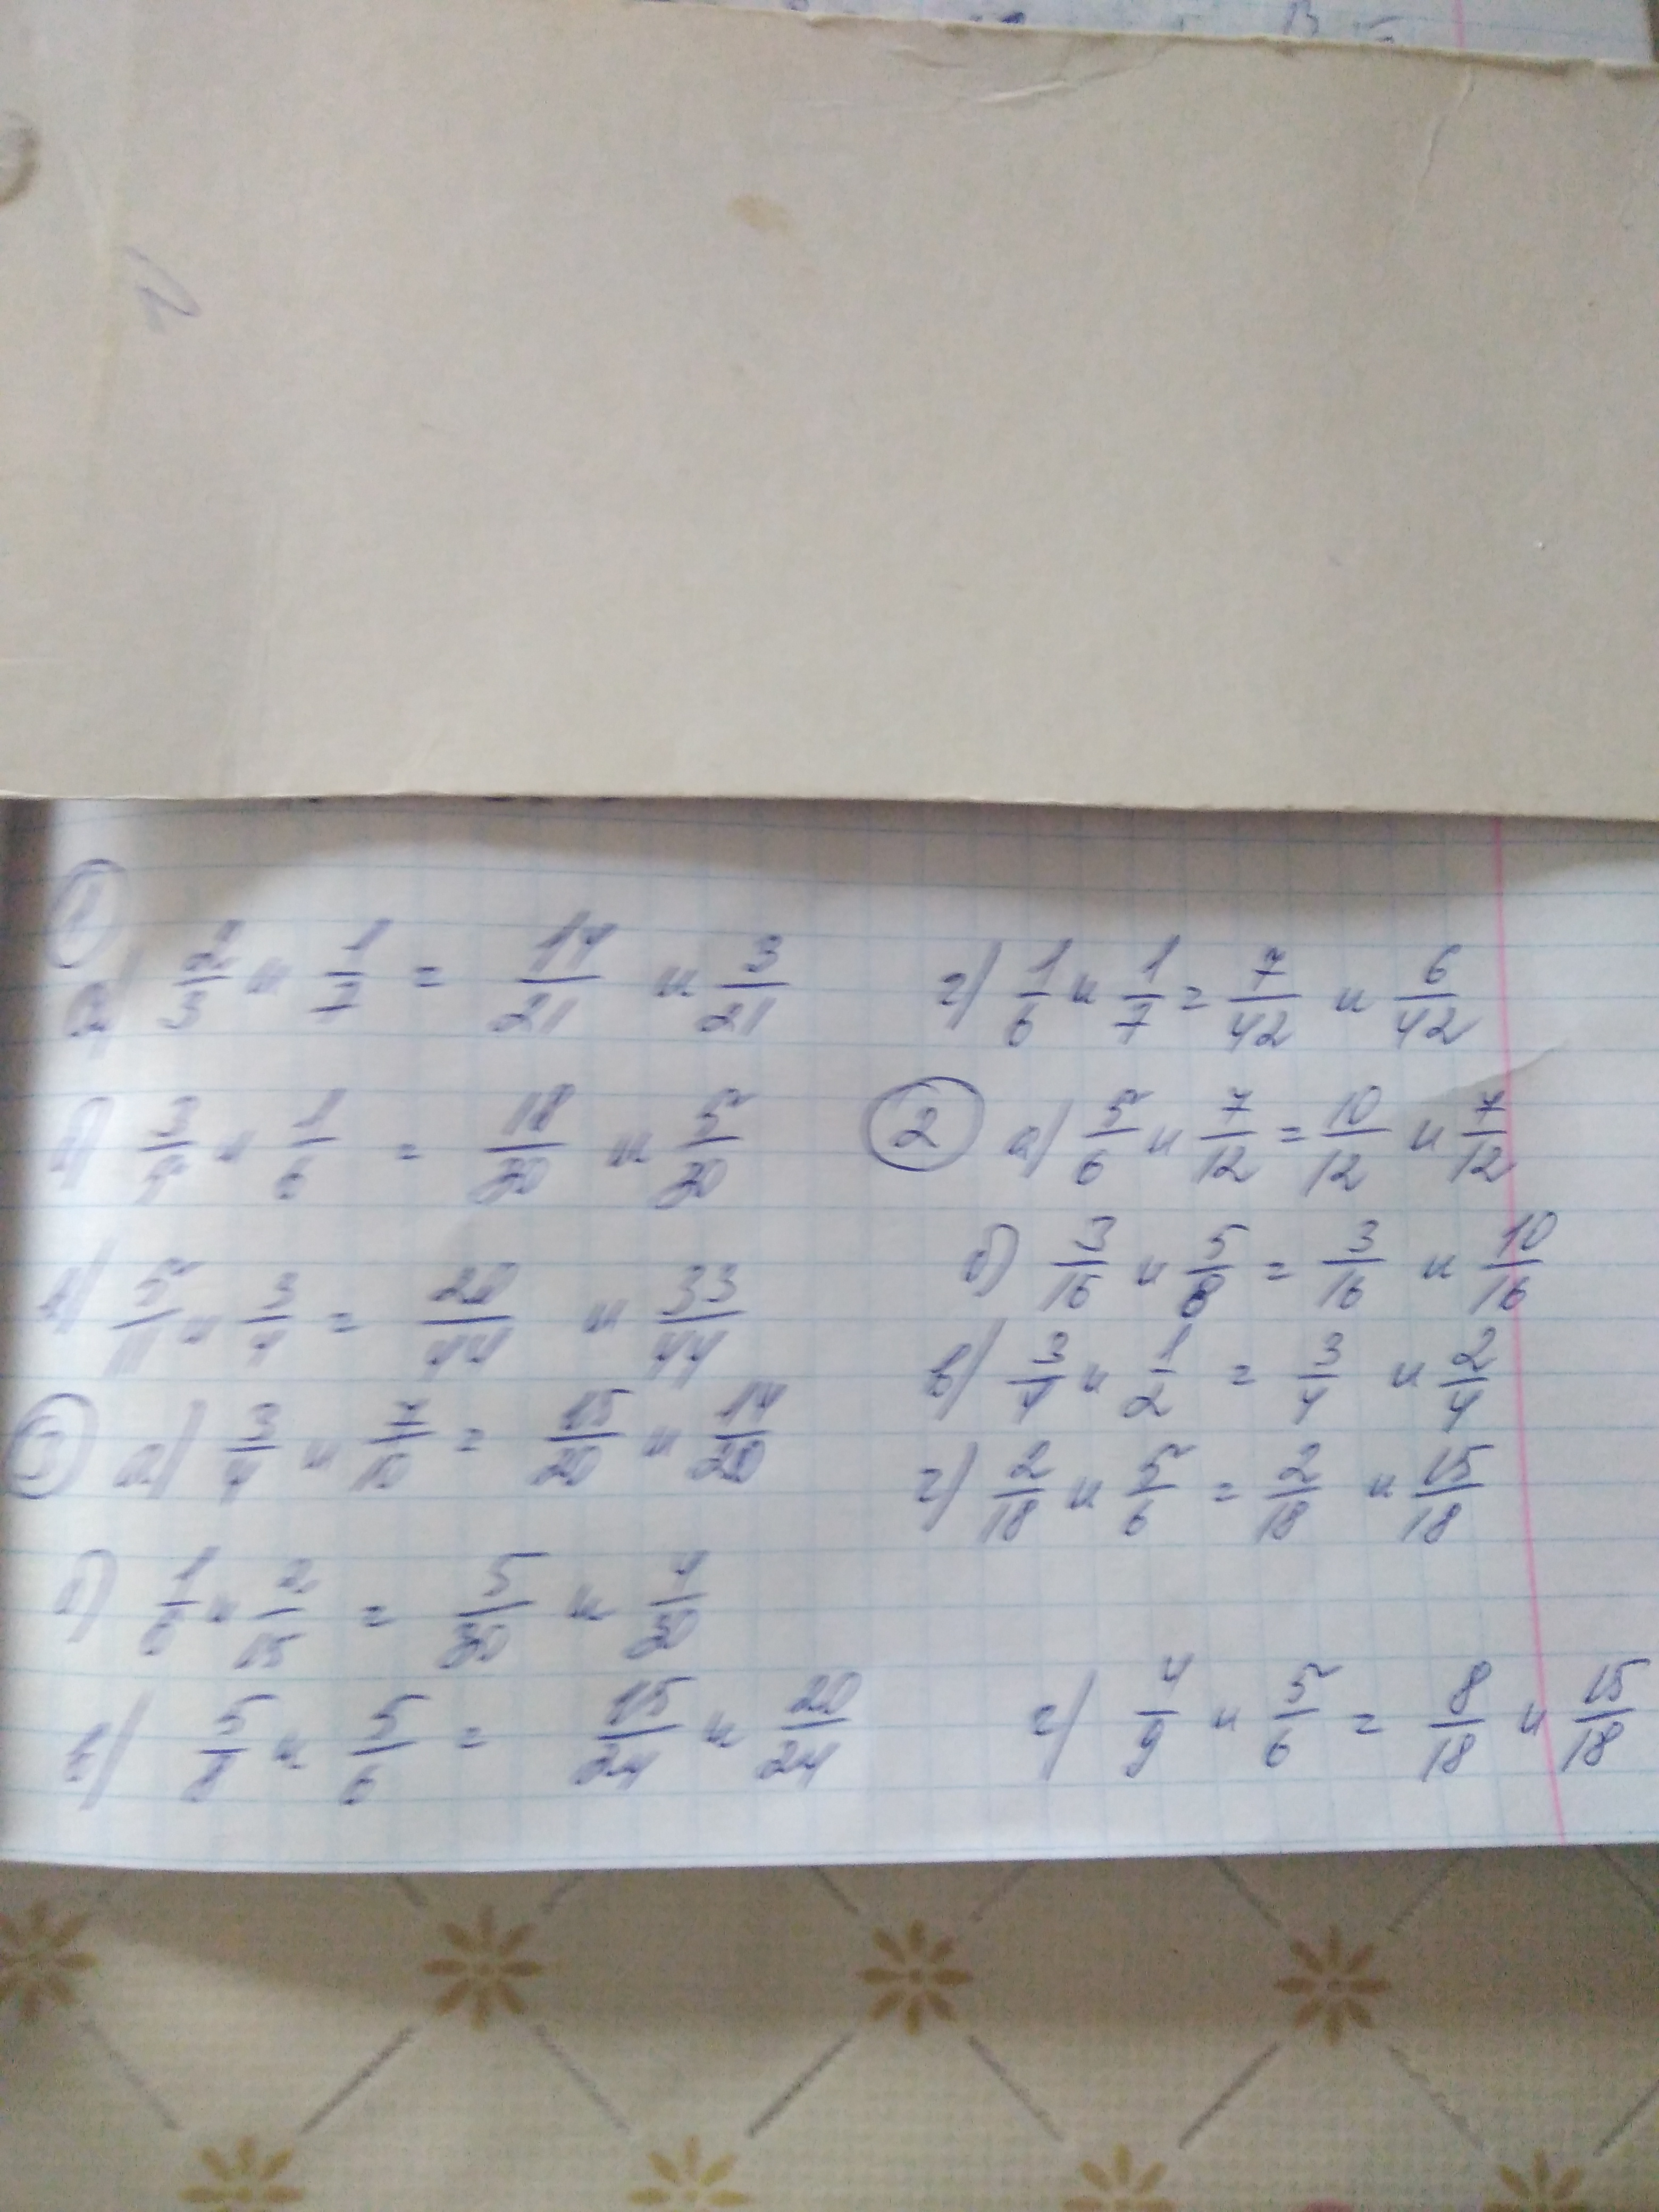 1
а) 2/3 и 1/7 = 14/21 и 3/21
б) 3/5 и 1/6 = 18/30 и 5/30
в) 5/11 и 3/4 = 20/44 и 33/44
г) 1/6 и 1/7 = 7/42 и 6/42
2 а) 5/6 и 7/12 = 10/12 и 7/12
б) 3/16 и 5/8 = 3/16 и 10/16
в) 3/4 и 1/2 = 3/4 и 2/4
г) 2/18 и 5/6 = 2/18 и 15/18
3 а) 3/4 и 7/10 = 15/20 и 14/20
б) 1/6 и 2/15 = 5/30 и 4/30
в) 5/8 и 5/6 = 15/24 и 20/24
г) 4/9 и 5/6 = 8/18 и 15/18